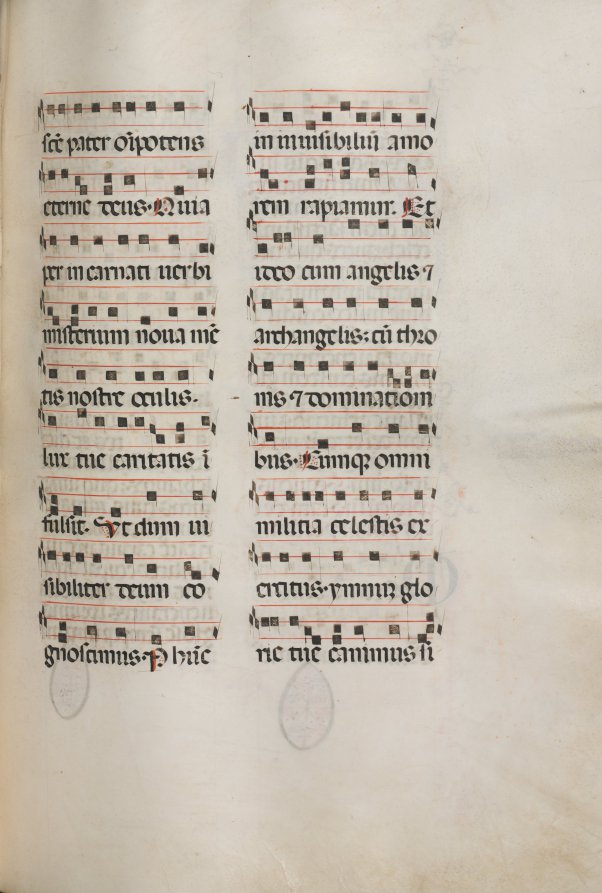 sce pater oipotens
eterne deus. Quia
per in carnati uerbi
misterium noua mē
tis nostre oculis.
lux tue caritatis ī
fulsit. Vt dum ui
sibiliter deum co
gnoscimus. P hūc
in inuisibiliū amo
rem rapiamur. Et
ideo cum angelis ⁊
archangelis: cū thro
nis ⁊ dominationi
bus. Cumqꝫ omni
militia celestis ex
ercitus. ymnuꝫ glo
rie tue canimus si